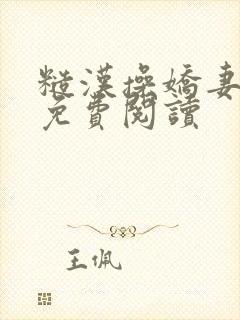 糙漢操嬌妻
免費閱讀
王佩